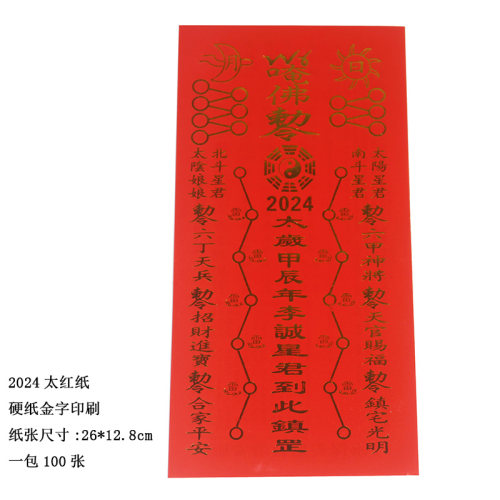 佛勅令
2024
太歲甲辰年李誠星君到此鎮罡
太陽星君
南斗星君
勅令六甲神將
勅令天官賜福
勅令鎮宅光明
北斗星君
太陰娘娘
勅令六丁天兵
勅令招財進寶
勅令合家平安
2024太红纸
硬纸金字印刷
纸张尺寸:26*12.8cm
一包100张